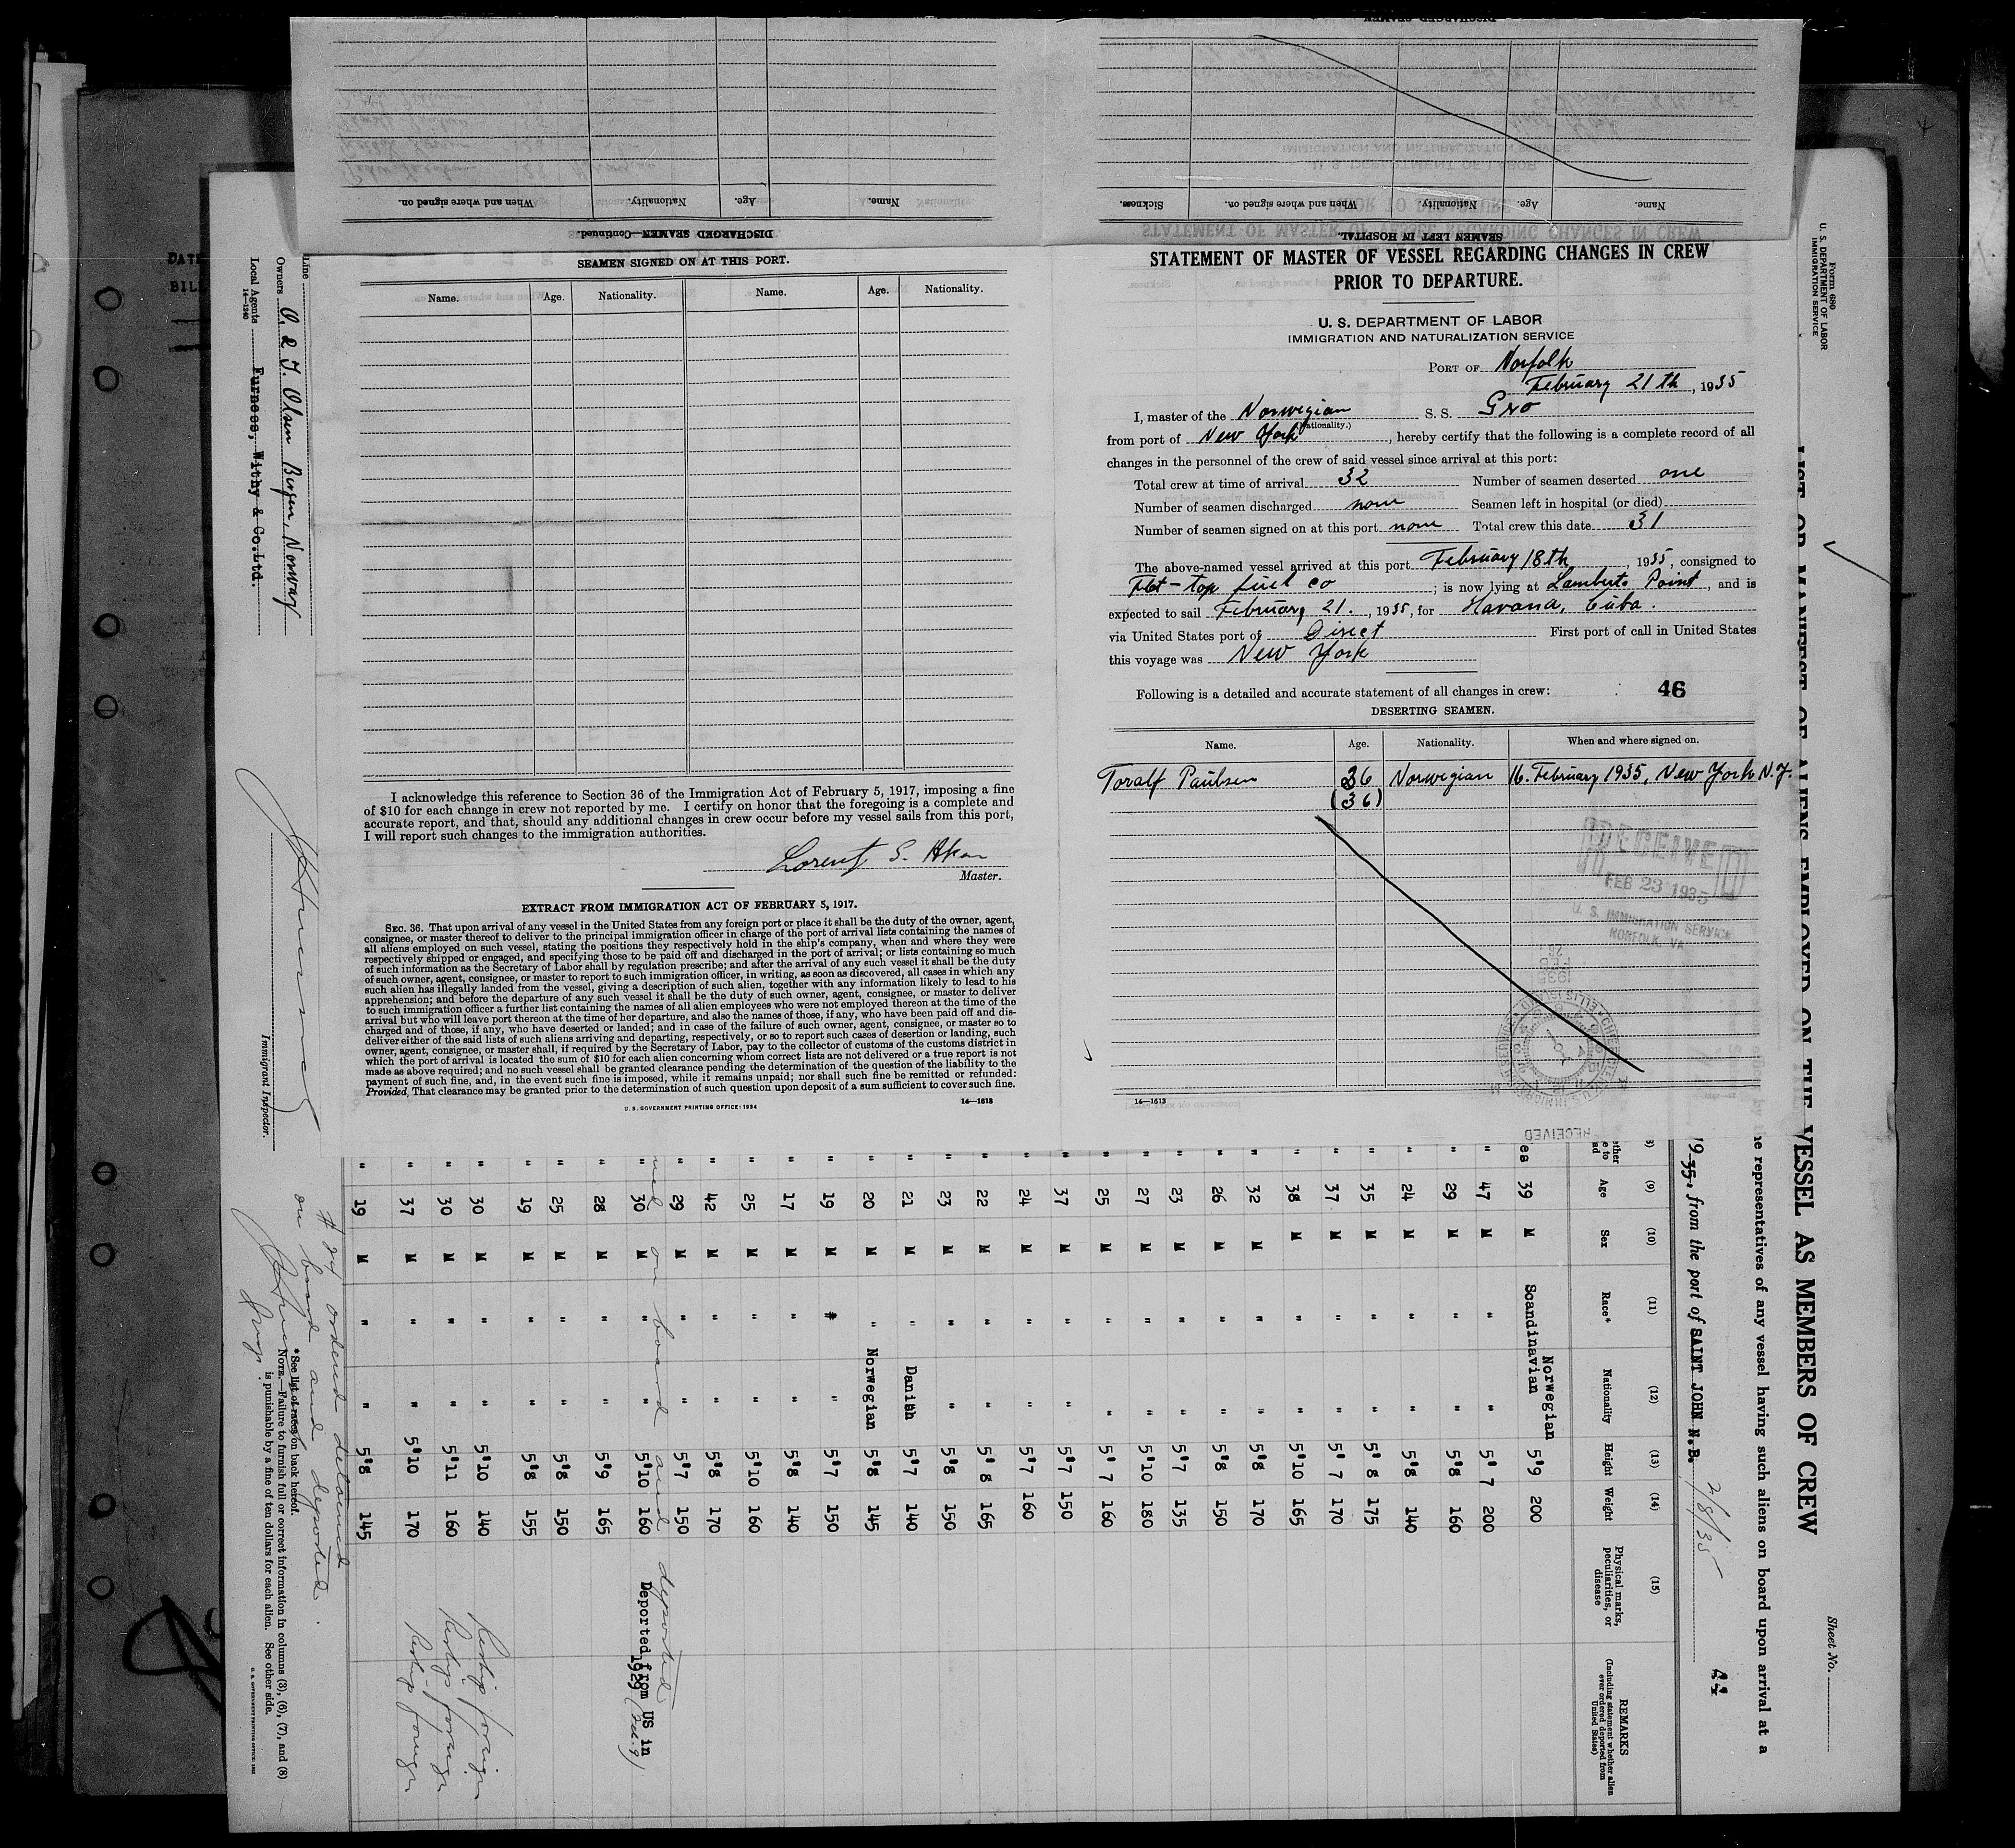 DISCHARGED SEAMEN—Continued.
Name. Age. Nationality. When and where signed on.
SEAMEN LEFT IN HOSPITAL.
Name. Age. Nationality. When and where signed on. Sickness.
SEAMEN SIGNED ON AT THIS PORT.
Name. Age. Nationality. Name. Age. Nationality.
I acknowledge this reference to Section 36 of the Immigration Act of February 5, 1917, imposing a fine
of $10 for each change in crew not reported by me. I certify on honor that the foregoing is a complete and
accurate report, and that, should any additional changes in crew occur before my vessel sails from this port,
I will report such changes to the immigration authorities.
Lorent S.
Master.
EXTRACT FROM IMMIGRATION ACT OF FEBRUARY 5, 1917.
SEC. 36. That upon arrival of any vessel in the United States from any foreign port or place it shall be the duty of the owner, agent,
consignee, or master thereof to deliver to the principal immigration officer in charge of the port of arrival lists containing the names of
all aliens employed on such vessel, stating the positions they respectively hold in the ship's company, when and where they were
respectively shipped or engaged, and specifying those to be paid off and discharged in the port of arrival; or lists containing so much
of such information as the Secretary of Labor shall by regulation prescribe; and after the arrival of any such vessel it shall be the duty
of such owner, agent, consignee, or master to report to such immigration officer, in writing, as soon as discovered, all cases in which any
such alien has illegally landed from the vessel, giving a description of such alien, together with any information likely to lead to his
apprehension; and before the departure of any such vessel it shall be the duty of such owner, agent, consignee, or master to deliver
to such immigration officer a further list containing the names of all alien employees who were not employed thereon at the time of the
arrival but who will leave port thereon at the time of her departure, and also the names of those, if any, who have been paid off and dis-
charged and of those, if any, who have deserted or landed; and in case of the failure of such owner, agent, consignee, or master so to
deliver either of the said lists of such aliens arriving and departing, respectively, or so to report such cases of desertion or landing, such
owner, agent, consignee, or master shall, if required by the Secretary of Labor, pay to the collector of customs of the customs district in
which the port of arrival is located the sum of $10 for each alien concerning whom correct lists are not delivered or a true report is not
made as above required; and no such vessel shall be granted clearance pending the determination of the question of the liability to the
payment of such fine, and, in the event such fine is imposed, while it remains unpaid; nor shall such fine be remitted or refunded:
Provided, That clearance may be granted prior to the determination of such question upon deposit of a sum sufficient to cover such fine.
U. S. GOVERNMENT PRINTING OFFICE: 1934 14—1613
STATEMENT OF MASTER OF VESSEL REGARDING CHANGES IN CREW
PRIOR TO DEPARTURE.
U. S. DEPARTMENT OF LABOR
IMMIGRATION AND NATURALIZATION SERVICE
PORT OF Norfolk
February 21th, 1935
I, master of the Norwegian S. S. Gro
(Nationality.)
from port of New York, hereby certify that the following is a complete record of all
changes in the personnel of the crew of said vessel since arrival at this port:
Total crew at time of arrival 32 Number of seamen deserted one
Number of seamen discharged none Seamen left in hospital (or died)
Number of seamen signed on at this port none Total crew this date 31
The above-named vessel arrived at this port February 18th, 1935, consigned to
Flat-top fuel co; is now lying at Lamberts Point, and is
expected to sail February 21., 1935, for Havana, Cuba.
via United States port of Direct First port of call in United States
this voyage was New York
Following is a detailed and accurate statement of all changes in crew: 46
DESERTING SEAMEN.
Name. Age. Nationality. When and where signed on.
Toralf Paulsen 36 Norwegian 16. February 1935, New York N.Y.
(36)
RECEIVED
FEB 23 1935
U. S. IMMIGRATION SERVICE
NORFOLK, VA.
14—1613
RECEIVED
Form 680
U. S. DEPARTMENT OF LABOR
IMMIGRATION SERVICE
Sheet No.
LIST OR MANIFEST OF ALIENS EMPLOYED ON THE VESSEL AS MEMBERS OF CREW
the representatives of any vessel having such aliens on board upon arrival at a
1935, from the port of SAINT JOHN N.B. 2/8/35
44
(9) (10) (11) (12) (13) (14) (15)
Age Sex Race* Nationality Height Weight Physical marks, peculiarities, or disease REMARKS (Including statement whether alien ever ordered deported from United States)
39 M Scandinavian Norwegian 5'9 200
" 47 M " " 5'7 200
" 29 M " " 5'8 160
" 24 M " " 5'8 140
" 35 M " " 5'8 175
" 37 M " " 5'7 170
" 38 M " " 5'10 165
" 32 M " " 5'8 170
" 26 M " " 5'8 150
" 23 M " " 5'7 135
" 27 M " " 5'10 180
" 25 M " " 5'7 160
" 37 M " " 5'7 150
" 24 M " " 5'7 160
" 22 M " " 5'8 165
" 23 M " " 5'8 150
" 21 M " Danish 5'7 140
" 20 M " Norwegian 5'8 145
" 19 M " " 5'7 150
" 17 M " " 5'8 140
" 25 M " " 5'10 160
" 42 M " " 5'8 170
" 29 M " " 5'7 150
on board and deported
" 30 M " " 5'10 160 Deported from US in 1929 (Feb. 9)
" 28 M " " 5'9 165
" 25 M " " 5'8 150
" 19 M " " 5'8 155
" 30 M " " 5'10 140 Reship foreign
" 30 M " " 5'11 160 Reship foreign
" 37 M " " 5'10 170 Reship foreign
" 19 M " " 5'8 145
# 24 ordered detained
on board and deported.
*See list of races on back hereof.
NOTE.—Failure to furnish full or correct information in columns (3), (6), (7), and (8)
is punishable by a fine of ten dollars for each alien. See other side.
Line
Owners O. & T. Olsen Bergen, Norway
Local Agents Furness, Withy & Co.Ltd.
14—1240
Immigrant Inspector.
DATE